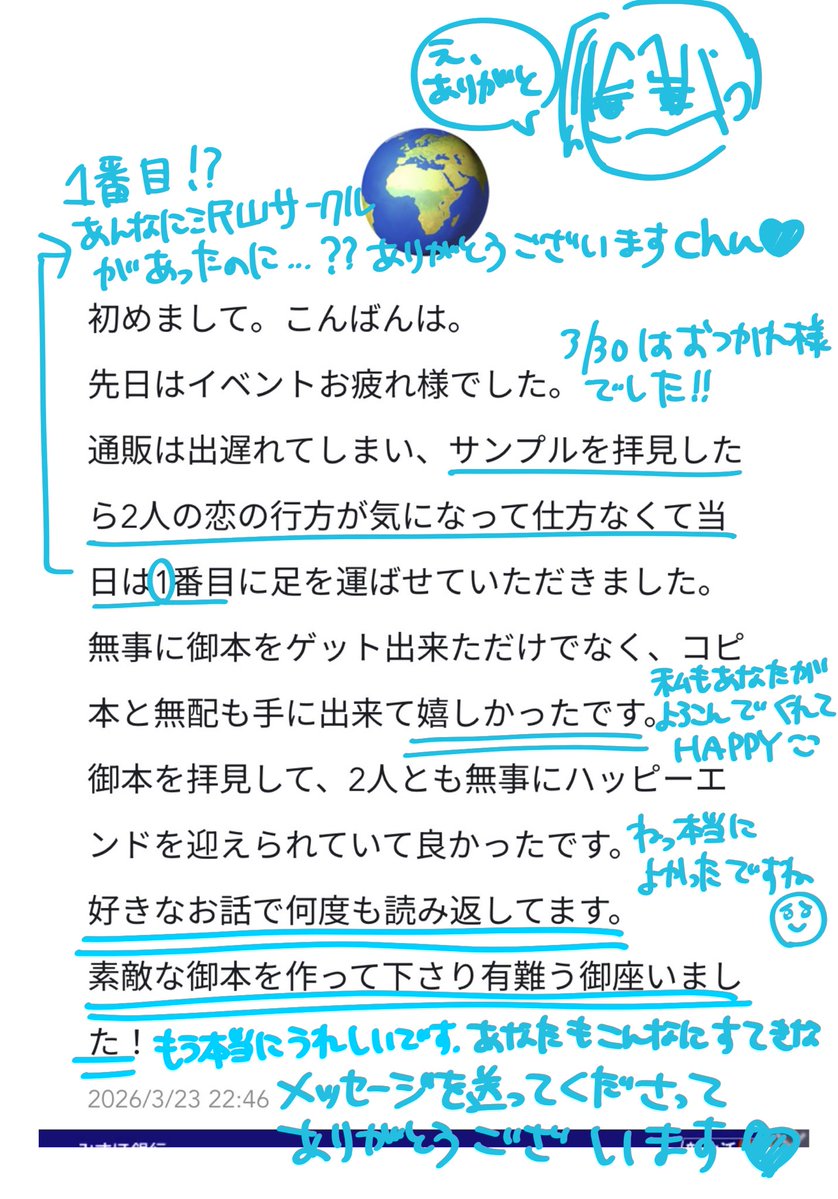 え、
ありがと
1番目!?
あんなに沢山サークル
があったのに…??ありがとうございますchu♥
初めまして。こんばんは。
3/30はおつかれ様
でした!!
先日はイベントお疲れ様でした。
通販は出遅れてしまい、サンプルを拝見した
ら2人の恋の行方が気になって仕方なくて当
日は1番目に足を運ばせていただきました。
無事に御本をゲット出来ただけでなく、コピ
本と無配も手に出来て嬉しかったです。
私もあなたが
よろこんでくれて
HAPPY
御本を拝見して、2人とも無事にハッピーエ
ンドを迎えられていて良かったです。
ねっ本当に
よかったですね
好きなお話で何度も読み返してます。
素敵な御本を作って下さり有難う御座いまし
た！
もう本当にうれしいです.あなたもこんなにすてきな
メッセージを送ってくださって
ありがとうございます♥
2026/3/23 22:46
みずほ銀行